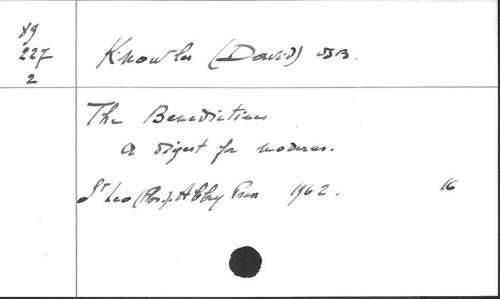 89
227
2
Knowles (David) OSB.
The Benedictines
a digest for moderns.
St Leo (Flo.). Abbey Press 1962. 16